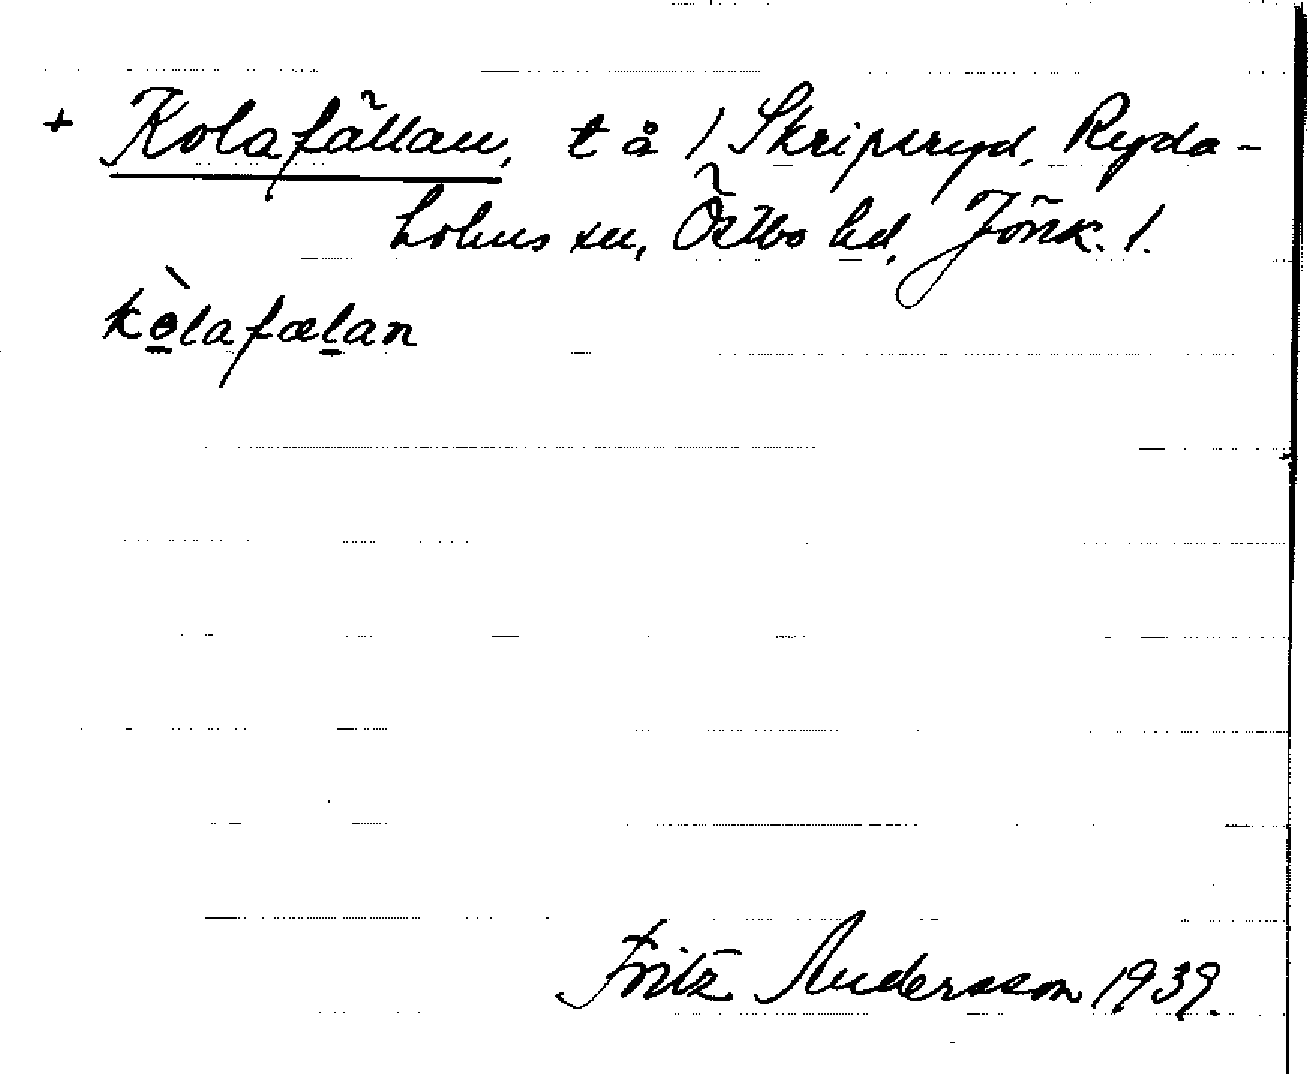 + Kolafällan, t å / Skripsryd, Ryda-
holms sn, Östbo hd, Jönk. l.
kòlafælan
Fritz Andersson 1939.